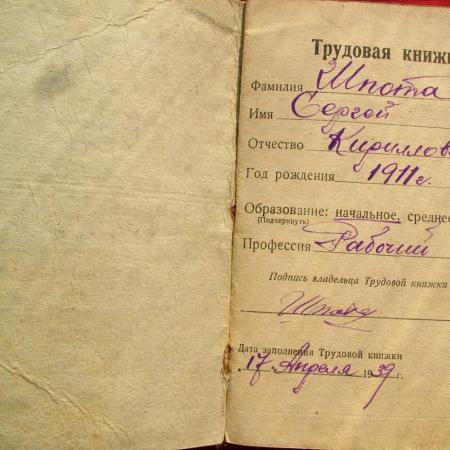 Трудовая книжк
Фамилия Шпота
Имя Сергей
Отчество Кириллов
Год рождения 1911 г.
Образование: начальное, среднее
(Подчеркнуть)
Профессия Рабочий
Подпись владельца Трудовой книжки
Шпота
Дата заполнения Трудовой книжки
„17“ Апреля 1939 г.